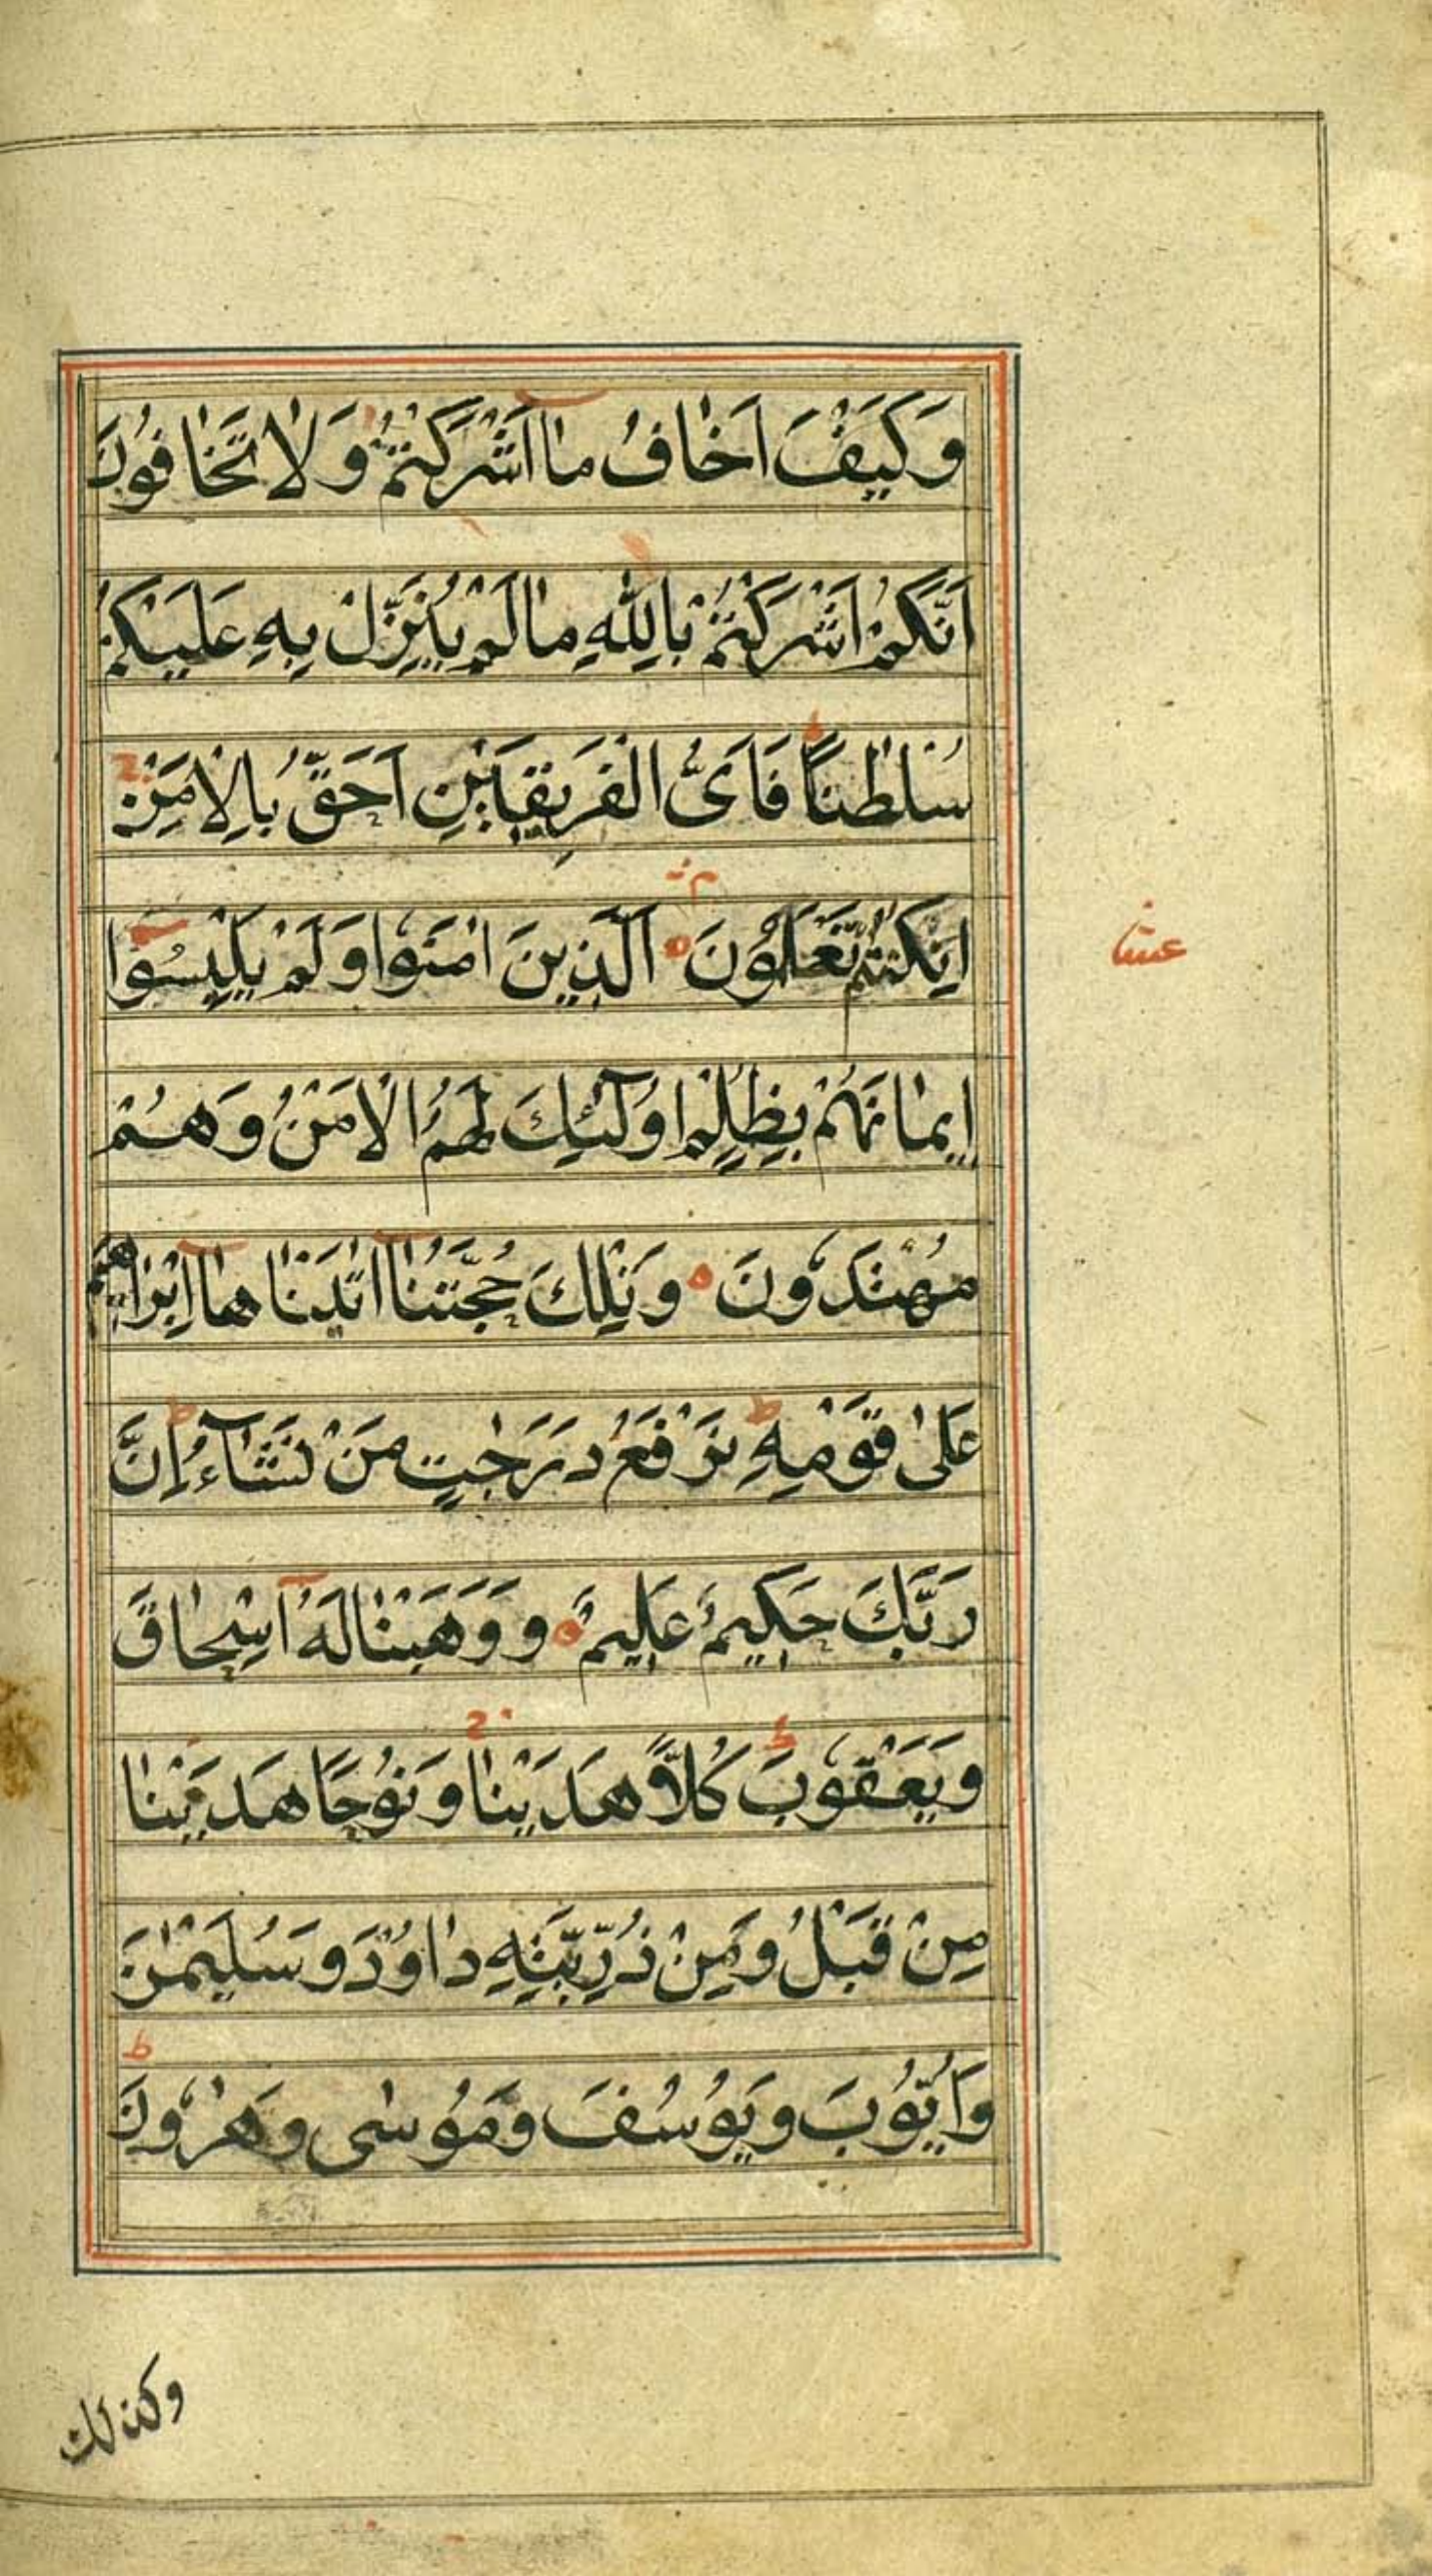 وَكَيْفَ اَخٰافُ مٰا اَشْرَكْتُمْ وَلٰا تَخٰافُونَ
اَنَّكُمْ اَشْرَكْتُمْ بِاللّٰهِ مٰا لَمْ يُنَزِّلْ بِهِ عَلَيْكُمْ
سُلْطٰنًا ط فَاَىُّ الْفَرِيقَيْنِ اَحَقُّ بِالْاَمْنِ ج
اِنْ كُنْتُمْ تَعْلَمُونَ اَلَّذِينَ اٰمَنُوا وَلَمْ يَلْبِسُوٓا
عشر
اِيمٰانَهُمْ بِظُلْمٍ اُولٰٓئِكَ لَهُمُ الْاَمْنُ وَهُمْ
مُهْتَدُونَ وَتِلْكَ حُجَّتُنٰآ اٰتَيْنٰاهٰآ اِبْرٰاهِيمَ
عَلىٰ قَوْمِهِ ط نَرْفَعُ دَرَجٰتٍ مَنْ نَشَآءُ ط اِنَّ
رَبَّكَ حَكِيمٌ عَلِيمٌ وَوَهَبْنٰا لَهُٓ اِسْحٰاقَ
وَيَعْقُوبَ ط كُلًّا هَدَيْنٰا ج وَنُوحًا هَدَيْنٰا
مِنْ قَبْلُ وَمِنْ ذُرِّيَّتِهِ دٰاوُدَ وَسُلَيْمٰنَ
وَاَيُّوبَ وَيُوسُفَ وَمُوسٰى وَهٰرُونَ ط
وكذلك